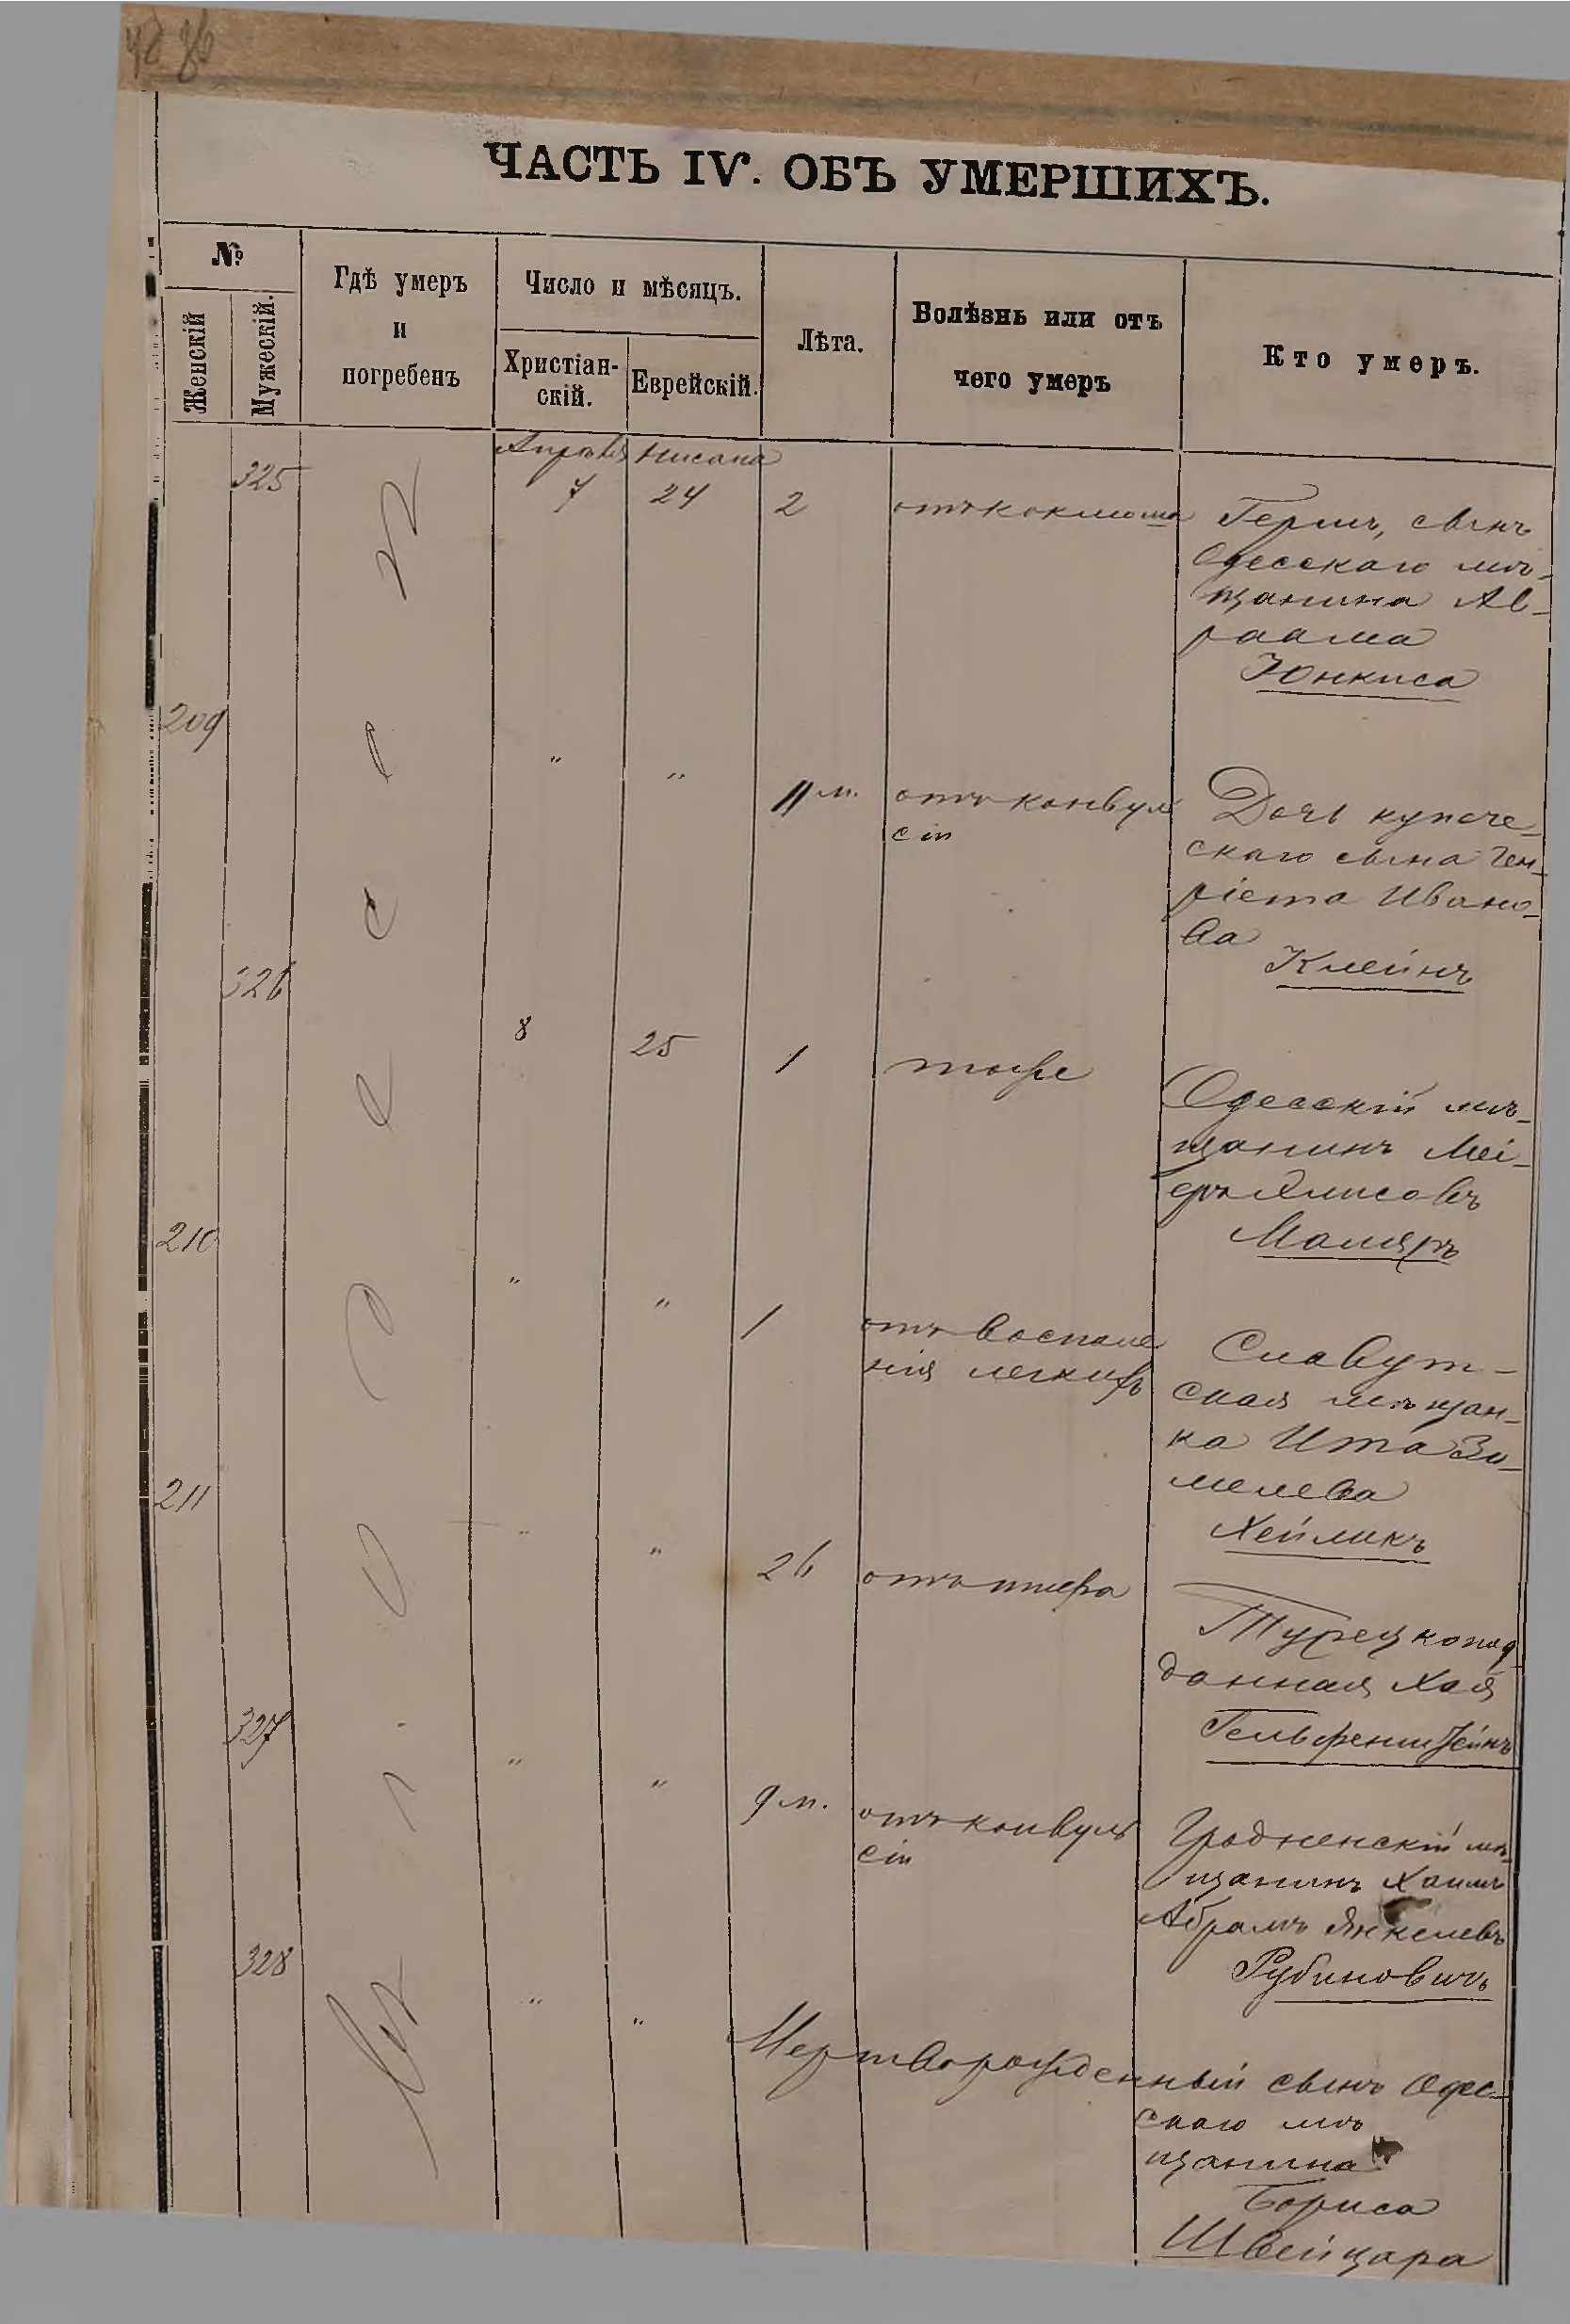 ЧАСТЬ IV. ОБЪ УМЕРШИХЪ.
№
Женскій
Мужескій.
Гдѣ умеръ
и
погребенъ
Число и мѣсяцъ.
Христіан-
скій.
Еврейскій.
Лѣта.
Болѣзнь или отъ
чего умеръ
Кто умеръ.
Апрѣля Нисана
325 7 24 2 отъ коклюша Герш, сынъ
Одесскаго мѣ-
щанина Ав-
раама
Юнкиса
209 " " 11 м. отъ конвуль
сіи
Дочь купече-
скаго сына Ген-
ріета Ивано-
ва
Клейнъ
326 8 25 1 тоже Одесскій мѣ-
щанинъ Меі-
еръ
Маляръ
210 " " 1 отъ воспале
нія легкихъ
Славут-
ская мѣщан-
ка Ита Зи-
мелева
Хеймикъ
211 " " 26 отъ тифа
Турецкопод-
данная Хая
Гельфенштейнъ
327 " " 9 м. отъ конвуль
сіи
Гродненскій мѣ-
щанинъ Хаимъ
Абрамъ Янкелевъ
Рубиновичъ
328 " " Мертворожденный сынъ Одес-
скаго мѣ
щанина
Бориса
Швейцара